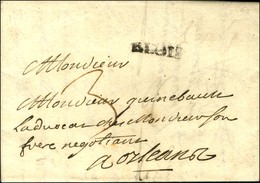 BLOIS
Monsieur
3
Monsieur quinebault
Ladvocat chez Monsieur son
frere negotiant
a orleans